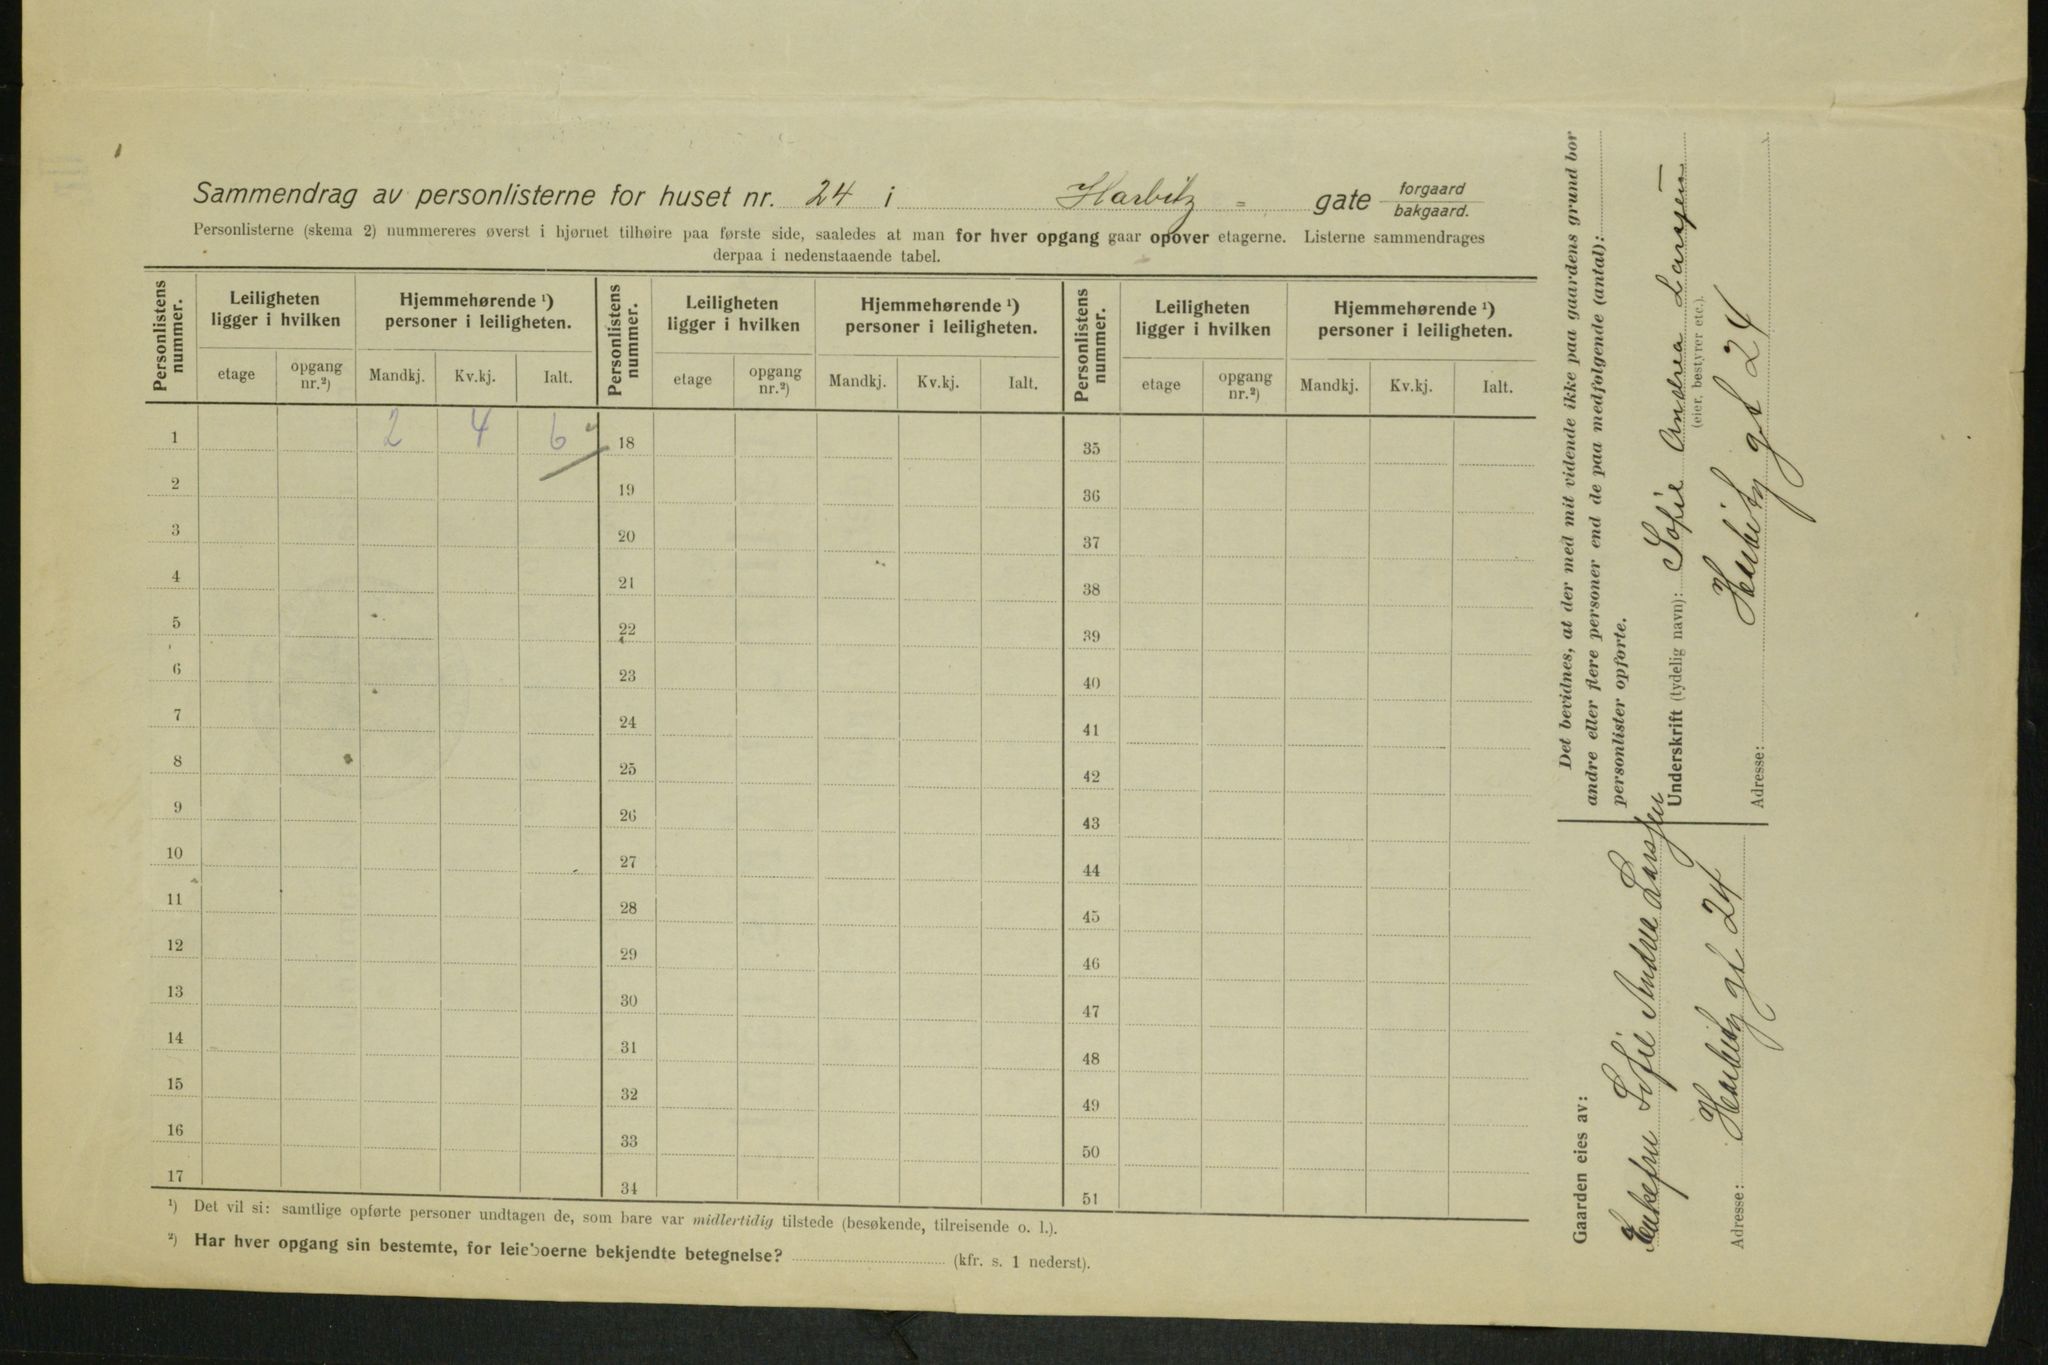 Sammendrag av personlisterne for huset nr. 24 i Harbitz - gate forgaard bakgaard.
Personlisterne (skema 2) nummereres øverst i hjørnet tilhøire paa første side, saaledes at man for hver opgang gaar opover etagerne. Listerne sammendrages
derpaa i nedenstaaende tabel.
Personlistens nummer. Leiligheten ligger i hvilken Hjemmehørende ¹) personer i leiligheten. Personlistens nummer. Leiligheten ligger i hvilken Hjemmehørende ¹) personer i leiligheten. Personlistens nummer. Leiligheten ligger i hvilken Hjemmehørende ¹) personer i leiligheten.
etage opgang nr.²) Mandkj. Kv.kj. Ialt. etage opgang nr.²) Mandkj. Kv.kj. Ialt. etage opgang nr.²) Mandkj. Kv.kj. Ialt.
1 2 4 6 18 35
2 19 36
3 20 37
4 21 38
5 22 39
6 23 40
7 24 41
8 25 42
9 26 43
10 27 44
11 28 45
12 29 46
13 30 47
14 31 48
15 32 49
16 33 50
17 34 51
¹) Det vil si: samtlige opførte personer undtagen de, som bare var midlertidig tilstede (besøkende, tilreisende o. l.).
²) Har hver opgang sin bestemte, for leieboerne bekjendte betegnelse? (kfr. s. 1 nederst).
Det bevidnes, at der med mit vidende ikke paa gaardens grund bor
andre eller flere personer end de paa medfølgende (antal):
personlister opførte.
Underskrift (tydelig navn): Sofie Andrea Larsen
(eier, bestyrer etc.).
Harbitz gt 24
Adresse:
Gaarden eies av:
Enkefru Sofie Andrea Larsen
Harbitz gt 24
Adresse: